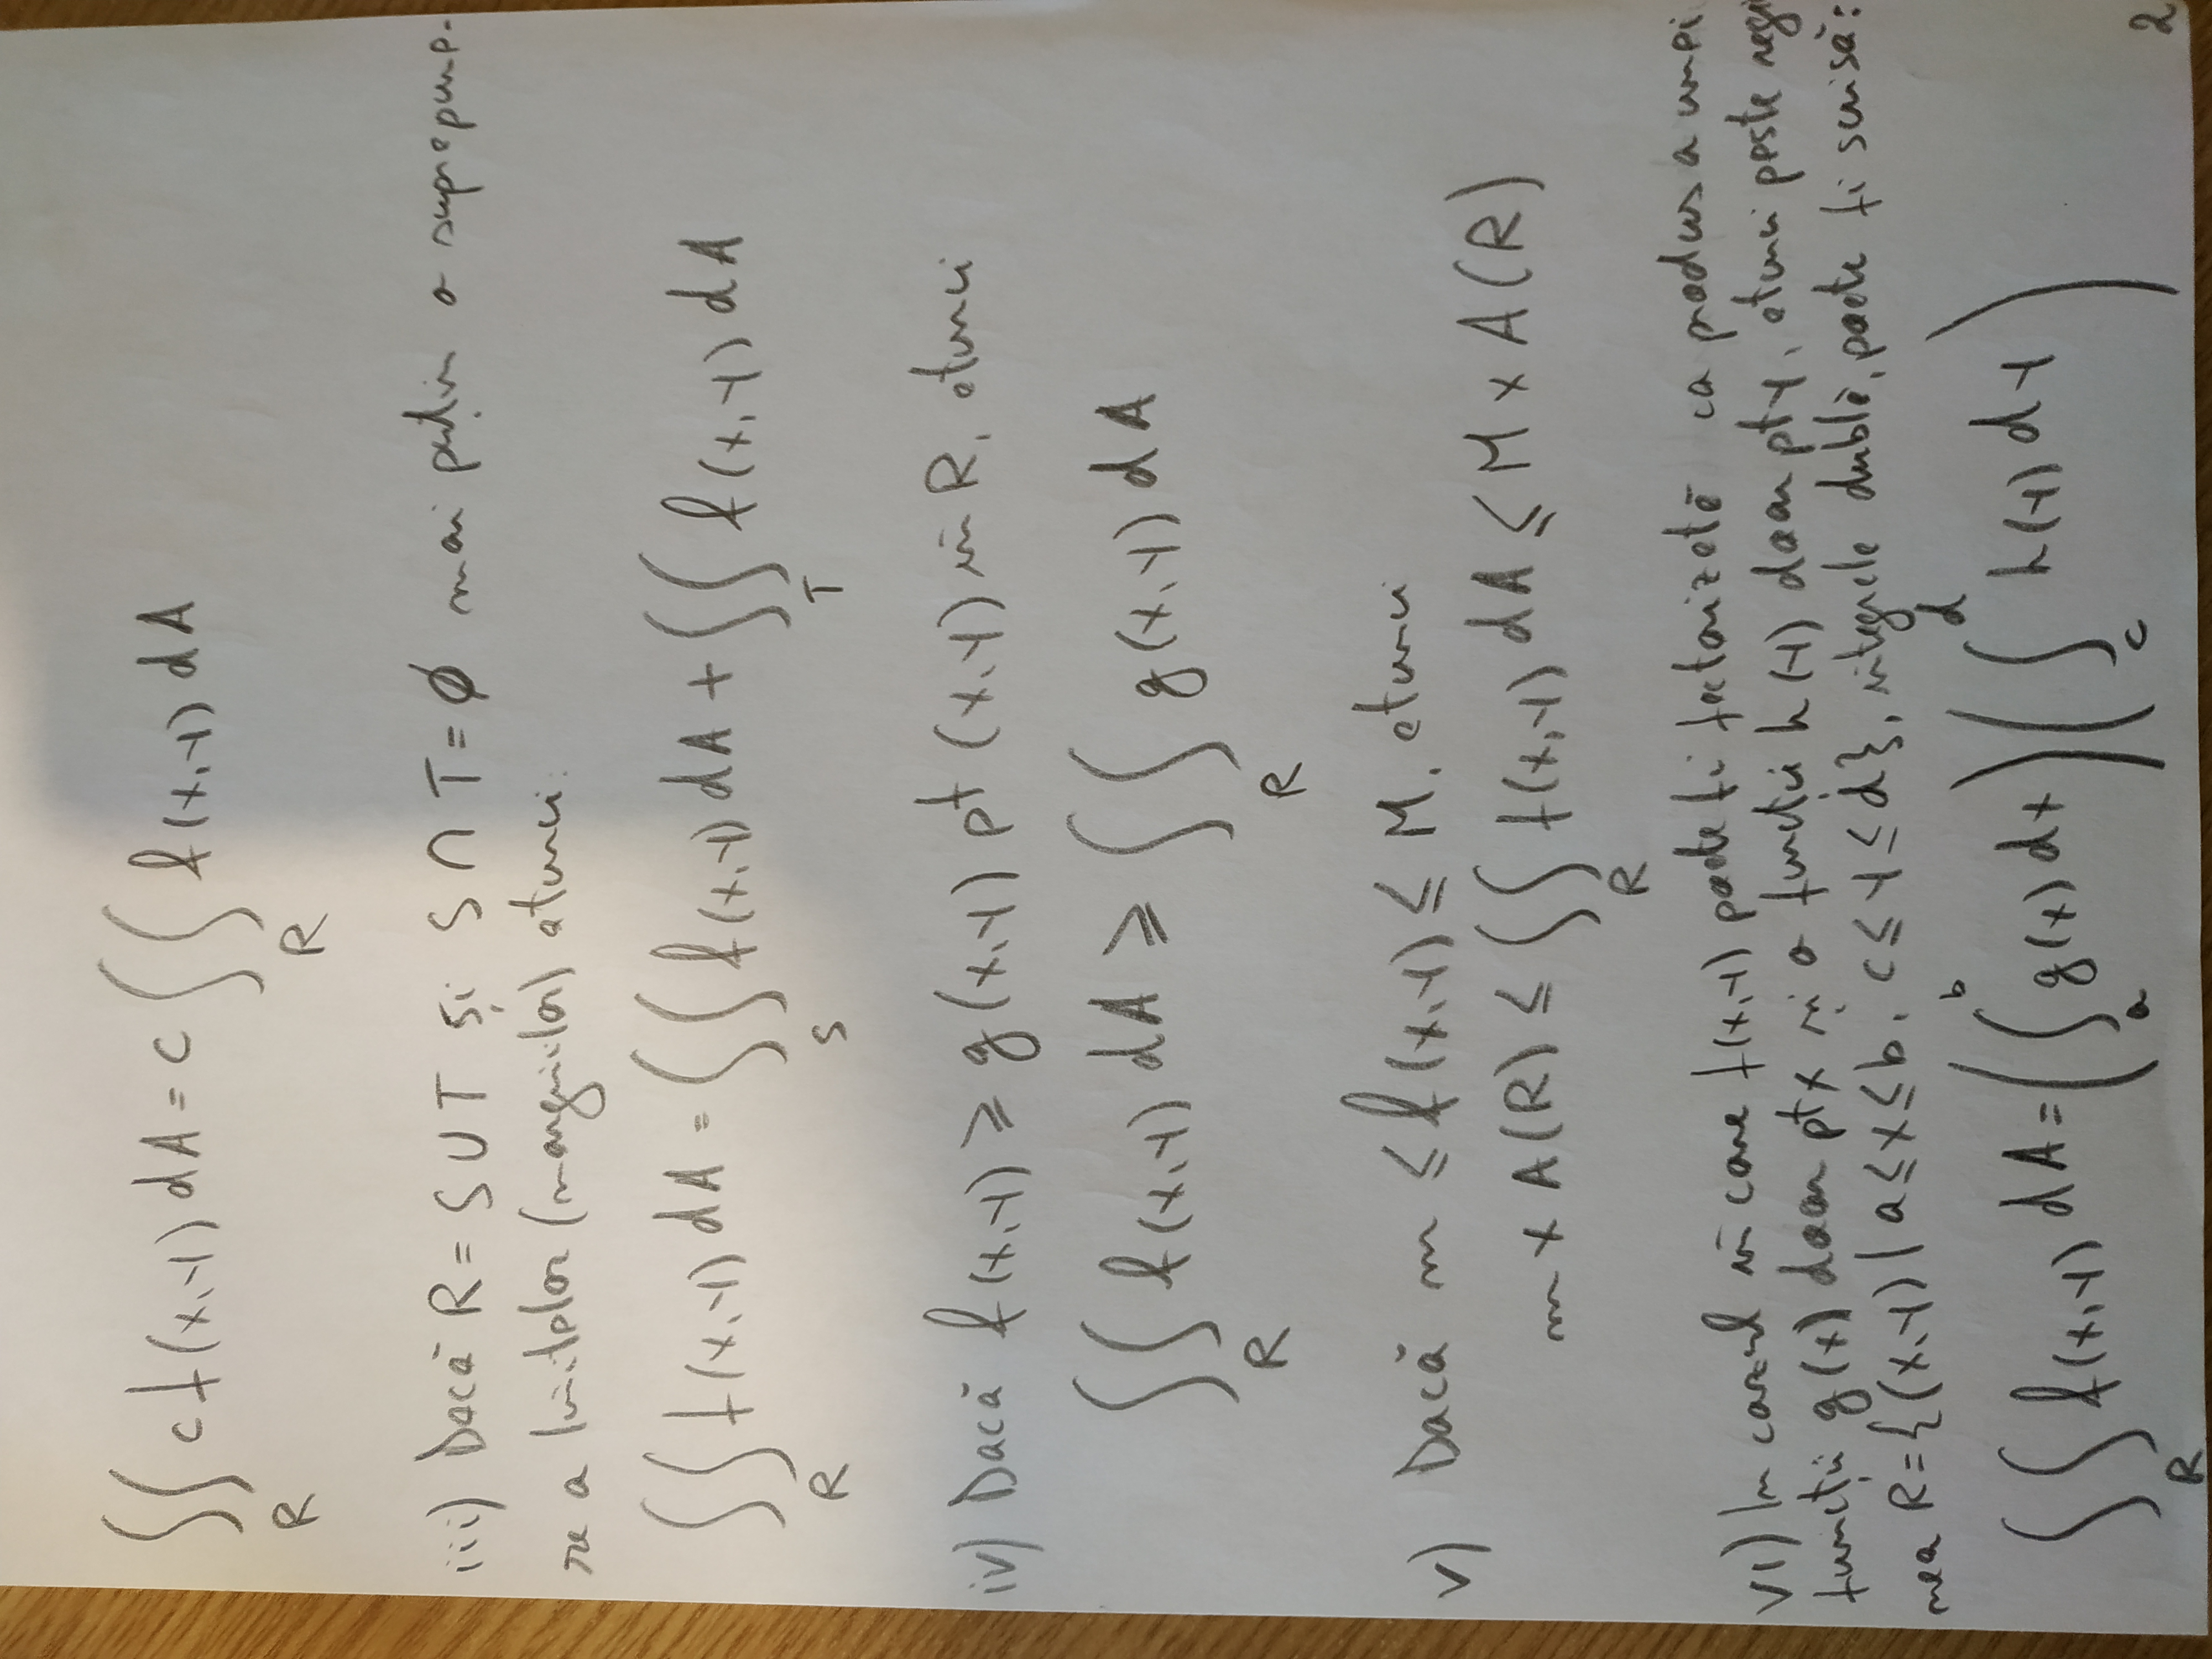 ∬ c f(x,y) dA = c ∬ f(x,y) dA
R R
iii) Dacă R = S ∪ T și S ∩ T = ∅ mai puțin o suprapune-
re a limitelor (marginilor) atunci:
∬ f(x,y) dA = ∬ f(x,y) dA + ∬ f(x,y) dA
R S T
iv) Dacă f(x,y) ≥ g(x,y) pt (x,y) în R, atunci
∬ f(x,y) dA ≥ ∬ g(x,y) dA
R R
v) Dacă m ≤ f(x,y) ≤ M, atunci
m × A(R) ≤ ∬ f(x,y) dA ≤ M × A(R)
R
vi) In cazul în care f(x,y) poate fi factorizată ca produs a unei
funcții g(x) doar pt x și o funcții h(y) doar pt y, atunci peste regi
nea R = {(x,y) | a ≤ x ≤ b, c ≤ y ≤ d}, integrala dublă, poate fi scrisă:
b d
∬ f(x,y) dA = (∫ g(x) dx) (∫ h(y) dy)
R a c
2